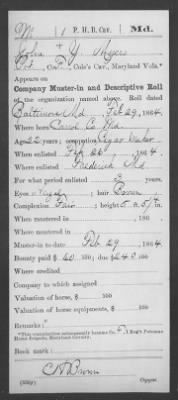 M | 1 P. H. B. Cav. | Md.
John Y. Myers
Pvt., Co. F, Cole's Cav., Maryland Vols.*
Appears on
Company Muster-in and Descriptive Roll
of the organization named above. Roll dated
Baltimore Md Feb 29, 1864.
Where born Carrol Co Md.
Age 22 years; occupation Cigar Maker
When enlisted Feb 26, 1864.
Where enlisted Frederick Md
For what period enlisted 3 years.
Eyes Hazel; hair Brown
Complexion Fair; height 5 ft. in.
When mustered in , 186 .
Where mustered in
Muster-in to date Feb 29, 1864.
Bounty paid $ 60 100; due $ 240 100
Where credited
Company to which assigned
Valuation of horse, $ 100
Valuation of horse equipments, $ 100
Remarks:
*This organization subsequently became Co. , 1 Reg't Potomac
Home Brigade, Maryland Cavalry.
Book mark:
Brown
(339g) Copyist.